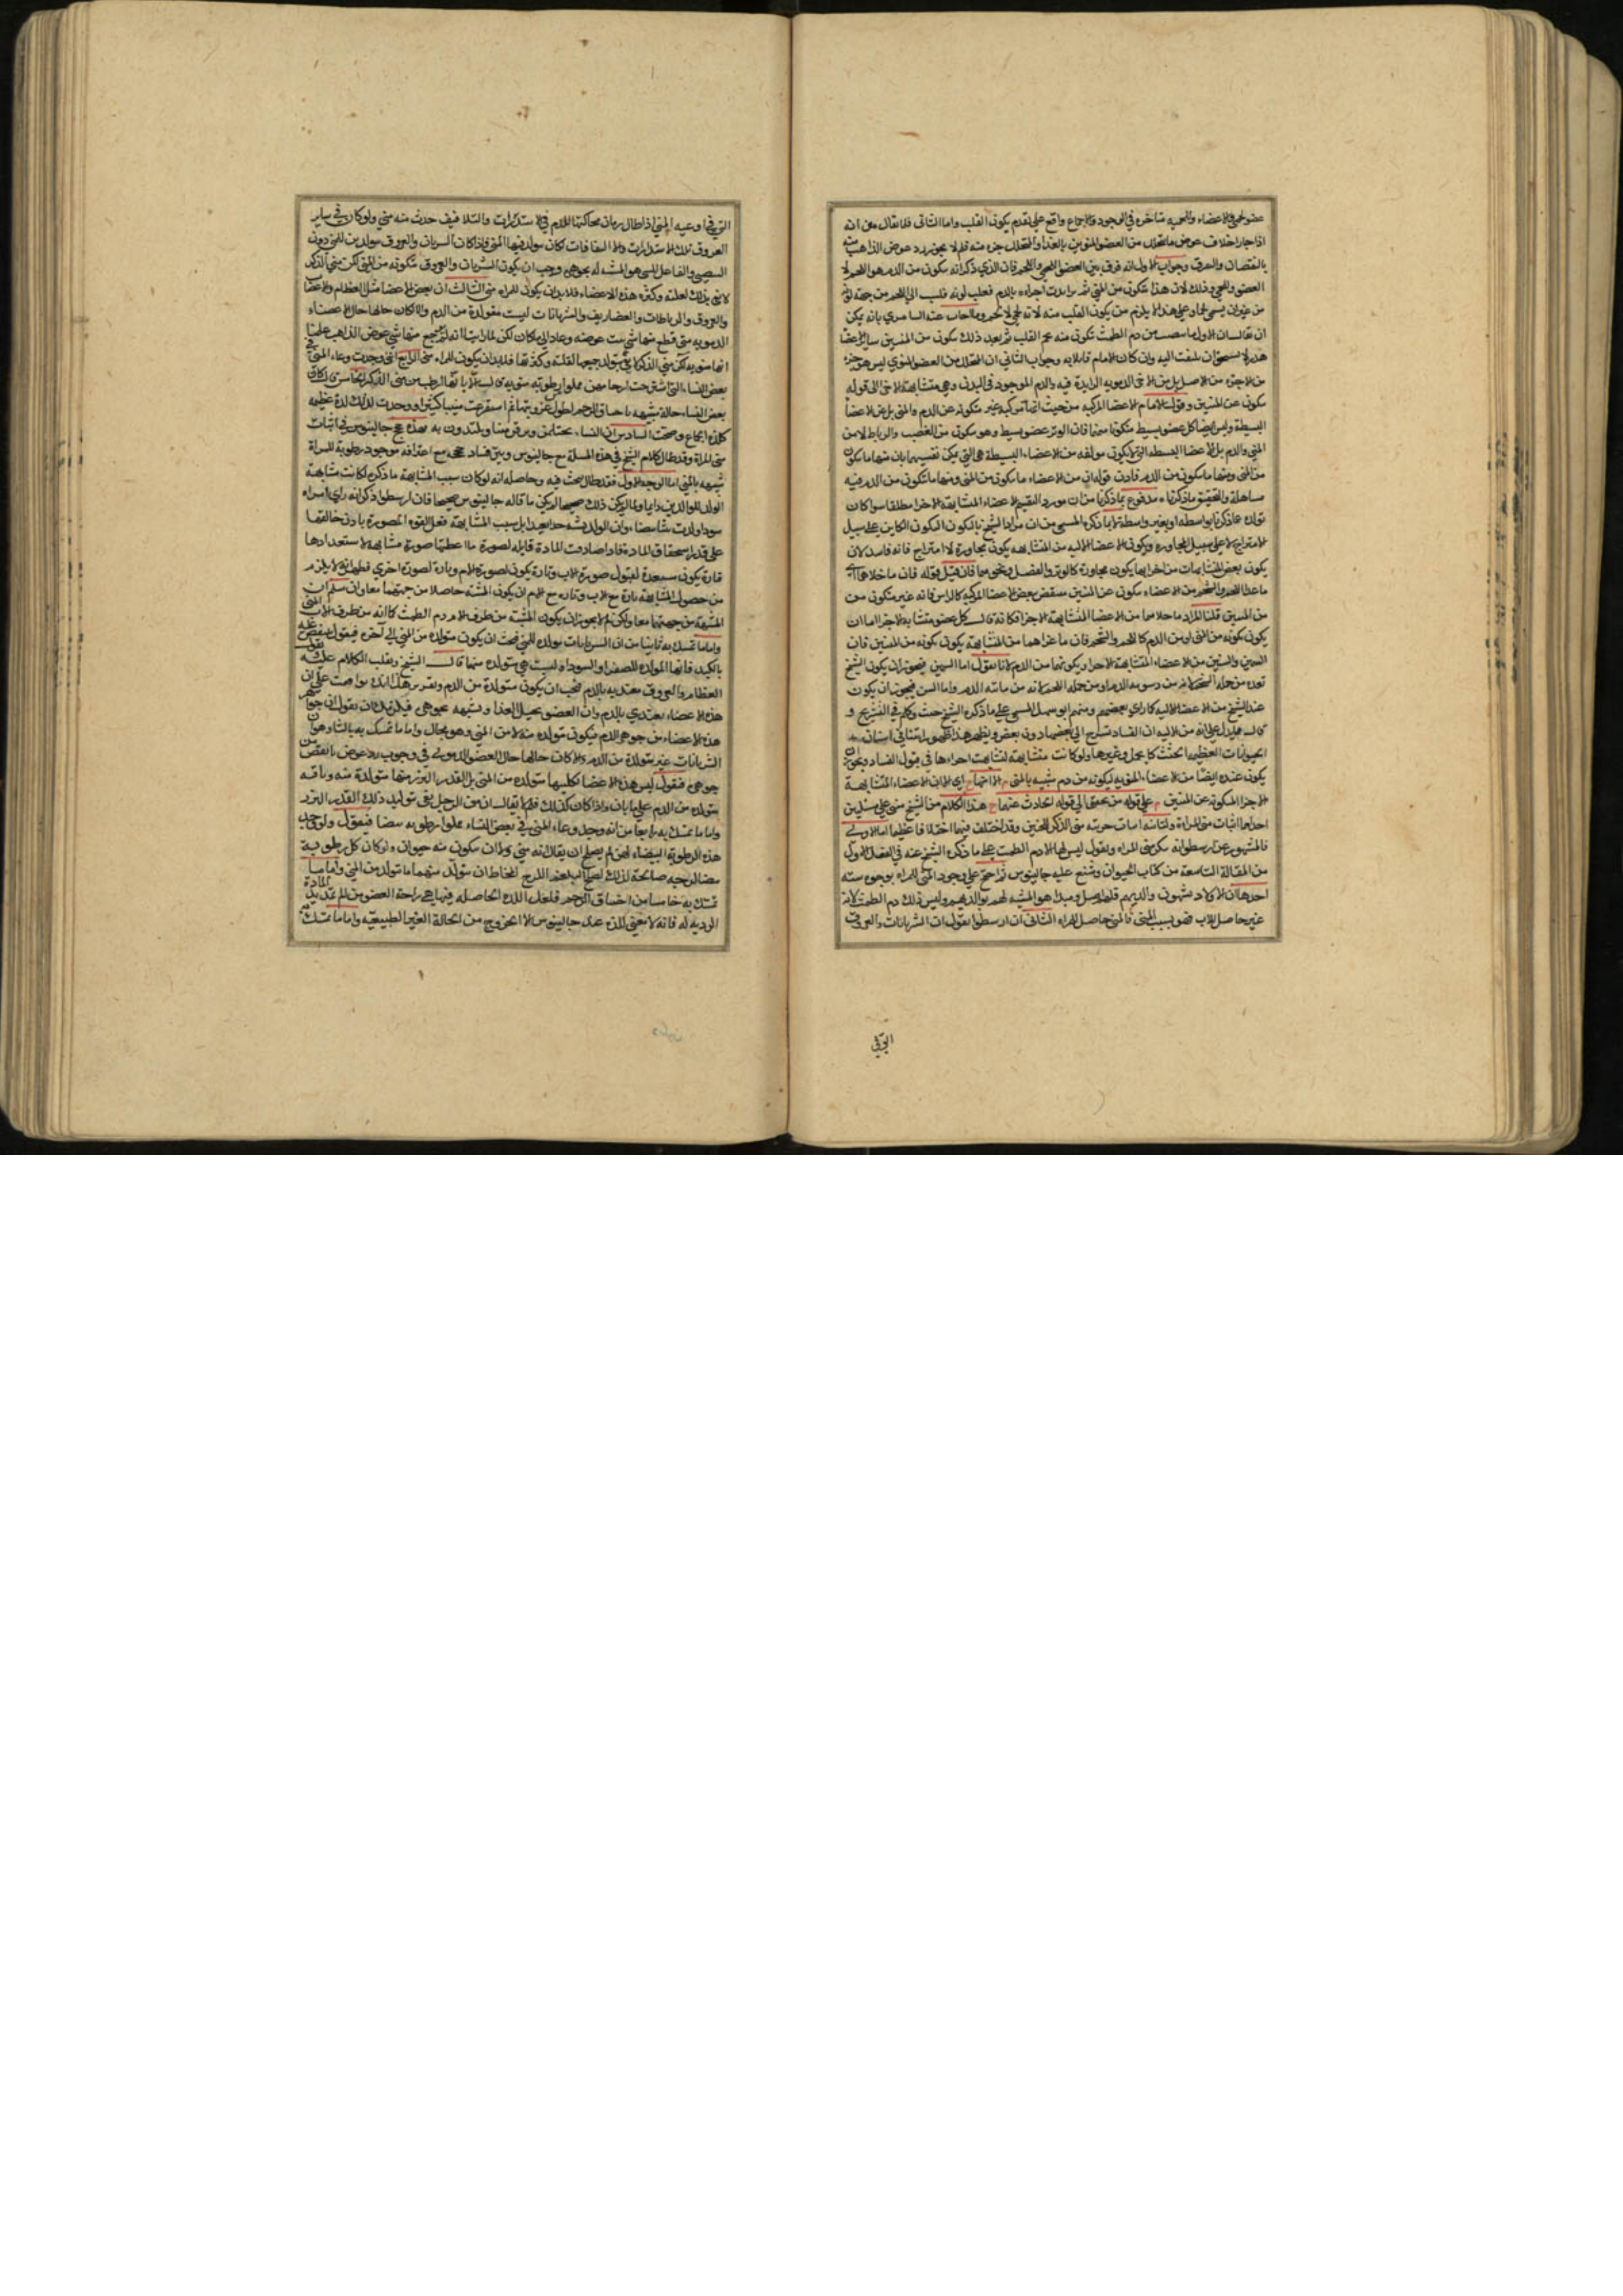 عضو لحمى والاعضاء اللحميه متاخره في الوجود والاجماع واقع على تقدم يكون القلب واما الثانى فلانقال معن انه
اذا جاز اخلاف عوض ما يتحلل من العضو المنوي بالغذا والمتحلل جزء منه فلم لا يجوز رد عوض الذاهب منه
بالنقصان والحرق وجواب الاول انه فرق بين العضو اللحمي واللحم فان الذي ذكر انه يتكون من الدم هو اللحم لا
العضو واللحمي وذلك لان هذا يتكون من المني ثم تزايدت اجزاءه بالدم فغلب لونه فلسب الى اللحم من جهة لونه
من غيران يسمى لحما وعلى هذا لا يلزم من يكون القلب منه لانه لحمي لا لحم وما اجاب عنه السامري بانه يمكن
ان يقال ان الاول ما من دم الطمث تكون منه لحم القلب ثم بعد ذلك يتكون من المنيين سائر الاعضا
هذر لا يستحق ان يلتفت اليه وان كان الامام قابلا به وجواب الثاني ان المتحلل من العضو المنوي ليس هو جزء
من الاجزاء من الاصل بل من الاجزا الدمويه الزايدة فيه والدم الموجود فى البدن وهي متشابهة الاجزا الى قوله
يتكون عن المنيين وقول الامام الاعضا المركبه من حيث انها مركبه غير متكونه عن الدم والمنى بل عن الاعضا
البسيطة وليس ايضا كل عضو بسيط متكونا منهما فان الوتر عضو بسيط وهو يتكون من العصب والرباط لا من
المني والدم بل الاعضا البسيطه التي لا يكون مولفه من الاعضاء البسيطة هي التي يمكن تقسيمها بان منها ما يتكون
من المنى ومنها ما يتكون من الدم فاذت قوله ان من الاعضاء ما يتكون من المني ومنها ما تتكون من الدم فيه
مساهلة والتحقيق ما ذكرناه مدفوع بما ذكرنا من ان مورد التقسيم الاعضاء المتشابهة الاجزا مطلقا سوا كان
تولده عما ذكرنا بواسطه او بغير واسطة لا بما ذكره المسيحي من ان مراد الشيخ بالتكون التكون الكاين على سبيل
الامتزاج لا على سبيل المجاوره ويكون الاعضا الاليه من المتشابهه يكون مجاورة لا امتزاج فانه فاسد لان
يكون بعض المتشابهات من اخر ايضا يكون مجاورة كالوتر والعضل ونحوهما فان قيل قوله فان ما خلاهما اى
ما عدا اللحم والشحم من الاعضاء يتكون عن المنيين ينتقض ببعض الاعضا المركبه كالراس فانه غير متكون من
من المنيين قلنا المراد ما خلاهما من الاعضا المتشابهة الاجزا فكانه قال كل عضو متشابه الاجزا اما ان
يكون تكونه من المنى او من الدم كاللحم والشحم فان ما عداهما من المتشابهة يكون تكونه من المنيين فان
السمين والسن من الاعضاء المتشابهة الاجزا ويكونهما من الدم لانا نقول اما السمين فيجوز ان يكون الشيخ
توده من جمله الشحم لانه من دسومه الدم او من جمله اللحم لانه من مائيه الدم واما السن فيجوز ان يكون
عند الشيخ من الاعضا الاليه كما راي بعضهم ومنهم ابو سهل المسيحي على ما ذكره الشيخ حيث تكلم في التشريح و
قال مما يدل على انه من الاليه ان الفساد يسرع الى بعضها دون بعض ويظهر هذا ظهورا بينا في اسنان
الحيوانات العظيمه الجثث كالجمل وغيرها ولو كانت متشابهة لتشابهت اجزاءها في قبول الفساد ويجوز ان
يكون عنده ايضا من الاعضاء المنويه لكونه من دم شبيه بالمنى م الا انهما ح اي الا ان الاعضاء المتشابهة
الاجزا المتكونه عن المنيين م على قوله من يحقق الى قوله الحادث عنهما ح هذا الكلام من الشيخ مبنى على مسئلتين
احداهما اثبات منى للمراة والثانيه اثبات حرمته منى الذكر للجنين وقد اختلف فيها اختلافا عظيما اما الاولى
فالمشهور عن ارسطو انه ينكر منى المراه ويقول ليس لها الا دم الطمث على ما ذكره الشيخ عنه في الفصل الاول
من المقالة التاسعة من كتاب الحيوان وشنع عليه جالينوس واحتج على وجود المنى للمراه بوجوه سته
احدها ان الاولاد يشبهون والديهم فلهم اصل ومبدا هو المشبه لهم بوالديهم وليس ذلك دم الطمث لانه
غير حاصل للاب فهو بسبب المنى فالمنى حاصل للمراه الثانى ان ارسطو يقول ان الشريانات والعروق
التي في
التي في اوعيه المني اذا طال زمان محاكتها للدم في الاستدارات والتلافيف حدث منه مني ولو كان في ساير
العروق تلك الاستدارات والالتفافات لكان مولد فيها المني فاذا كان الشريان والعروق مولدين للمني دون
البيضتين والفاعل للشى هو المشبه له بجوهره وجب ان يكون الشريان والعروق متكونه من المني لكن مني الذكر
لا يفي بذلك لعلته وكثره هذه الاعضاء فلا بد ان يكون للمراه مني الثالث ان بعض الاعضا مثل العظام والاعصاب
والعروق والرباطات والغضاريف والشريانات ليست متولدة من الدم والا لكان حالها حال الاعضاء
الدمويه متى قطع منها شي نبت عوضه وعاد الى ما كان لكن لما راينا انه لم يرجع منها شي عوض الذاهب علمنا
انها منويه لكن مني الذكر لا يفي بتولد جميعها لقلته وكثرتها فلا بد ان يكون للمراه منى الرابع اني وجدت وعاء المني في
بعض النساء التي شرحت ارحامهن مملوا برطوبه منويه قال الا انها ارطب من مني الذكر الخامس قال كان
بعض النساء حالة شبيهه باختناق الرحم لطول عزوبتها ثم استفرغت منيا كثيرا ووجدت لذلك لذة عظيمه
كلذه الجماع وصحت السادس ان النساء يحتلمن ويرقن منيا ويلتذون به فهذه حجج جالينوس في اثبات
منى المراة وقد طال كلام الشيخ في هذه المسلة مع جالينوس وبين فساد حججه مع اعترافه بوجود رطوبة للمراة
شبيهه بالمني اما الوجه الاول فقد طال بحث فيه وحاصله انه لو كان سبب المشابهة ما ذكره لكانت مشابهة
الولد للوالدين دايما ولما لم يكن ذلك صحيحا لم يكن ما قاله جالينوس صحيحا فان ارسطو ذكر انه راى امراه
سودا ولدت بنتا بيضاء وان الولد يشبه جدا بعيدا بل سبب المشابهة فعل القوه المصورة باذن خالقها
على قدر استحقاق المادة فاذا صادفت المادة قابله لصورة ما اعطتها صورة مشابهه لاستعدادها
فتارة يكون مستعدة لقبول صورة الاب وتارة يكون لصورة الام وتارة لصورة اخرى فظهر انه لا يلزم
من حصول المشابهه تارة مع الاب وتاره مع الام ان يكون المشبه حاصلا من جهتهما معا وان سلم ان
المشبهة من جهتهما معا ولكن لم لا يجوز ان يكون المشبه من طرف الام دم الطمث كما انه من طرف الاب المنى
واما ما تمسك به ثانيا من ان الشريانات مولده للمنى فيجب ان يكون متولده من المني الى آخره فيقول منتقض عليه
بالكبد فانها المولده للصفرا والسوداء وليست هي متولده منها قال الشيخ ونقلب الكلام عليه فنقول
العظام والعروق مغتذيه بالدم فيجب ان يكون متولدة من الدم ونقرير هذا انك يا من زعمت على ان
هذه الاعضاء يغتذي بالدم وان العضو يحيل الغذا ويشبهه بجوهره فيلزمك ان تقول ان جواهر
هذه الاعضاء من جوهر الدم فيكون متولده منه لا من المني وهو محال واما ما تمسك به ثالثا وهو ان
الشريانات غير متولدة من الدم والا كان حالها حال العضو الدموي في وجوب رد عوض ما نقص من
جوهره فنقول ليس هذه الاعضا بكليتها متولده من المنى بل القدر النزر منها متولدة منه وباقيه
يتولد من الدم على ما بان واذا كان كذلك فلم لا يقال ان مني الرجل يفي بتوليد ذلك القدر النزر
واما ما تمسك به رابعا من انه وجد وعاء المني في بعض النساء مملوا برطوبه بيضا فيقول ولو وجب
هذه الرطوبه البيضاء لمن لم يصلح ان يقال انه مني ولا ان يتكون منه حيوان ولو كان كل رطوبة
بيضا لزجه صالحة لذلك لصلح البلغم اللزج المخاط ان يتولد منهما ما يتولد من المني واما ما
تمسك به خامسا من اختناق الرحم فلعل اللذة الحاصله فيها هي راحة العضو من الم تمديد المادة
الرديه له فانه لا معنى للذه عند جالينوس الا الخروج من الحالة الغير الطبيعيه واما ما تمسك به